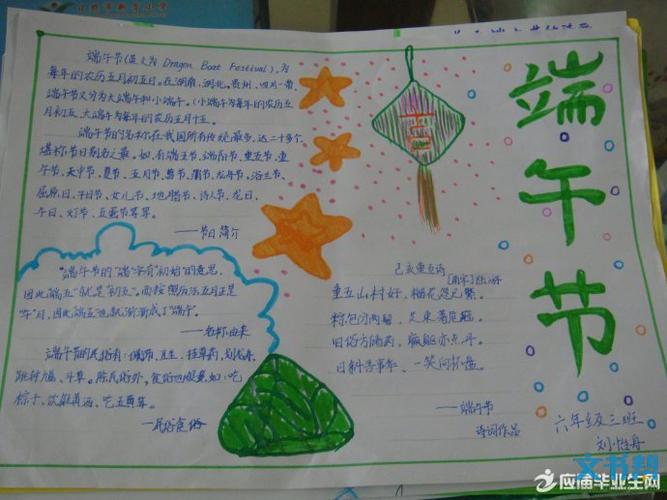 端午节
端午节(英文为 Dragon Boat Festival),为
每年的农历五月初五日。在湖南、湖北、贵州、四川一带,
端午节又分为大端午和小端午。(小端午为每年的农历五
月初五,大端午为每年的农历五月十五。
端午节的名称在我国所有传统节日中叫法最多,达二十多个,
堪称节日别名之最。如:有端五节、端阳节、重五节、重
午节、天中节、夏节、五月节、菖节、蒲节、龙舟节、浴兰节、
屈原日、午日节、女儿节、地腊节、诗人节、龙日、
午日、灯节、五蛋节等等。
——节日简介
"端午节的"端"字有"初始"的意思,
因此"端五"就是"初五"。而按照历法五月正是
"午"月,因此"端五"也就渐渐成了"端午"。
——名称由来
端午节的民俗有:
跳钟馗、斗草。除民俗外,食俗也颇多,如:吃
粽子、饮雄黄酒、吃五毒等。
——民俗食俗
己亥重五诗
[南宋]陆游
重五山村好,榴花忽已繁。
粽包分两髻,艾束著危冠。
旧俗方储药,羸躯亦点丹。
日斜吾事毕,一笑向杯盘。
——端午节
诗词作品
六年级三班
应届毕业生网